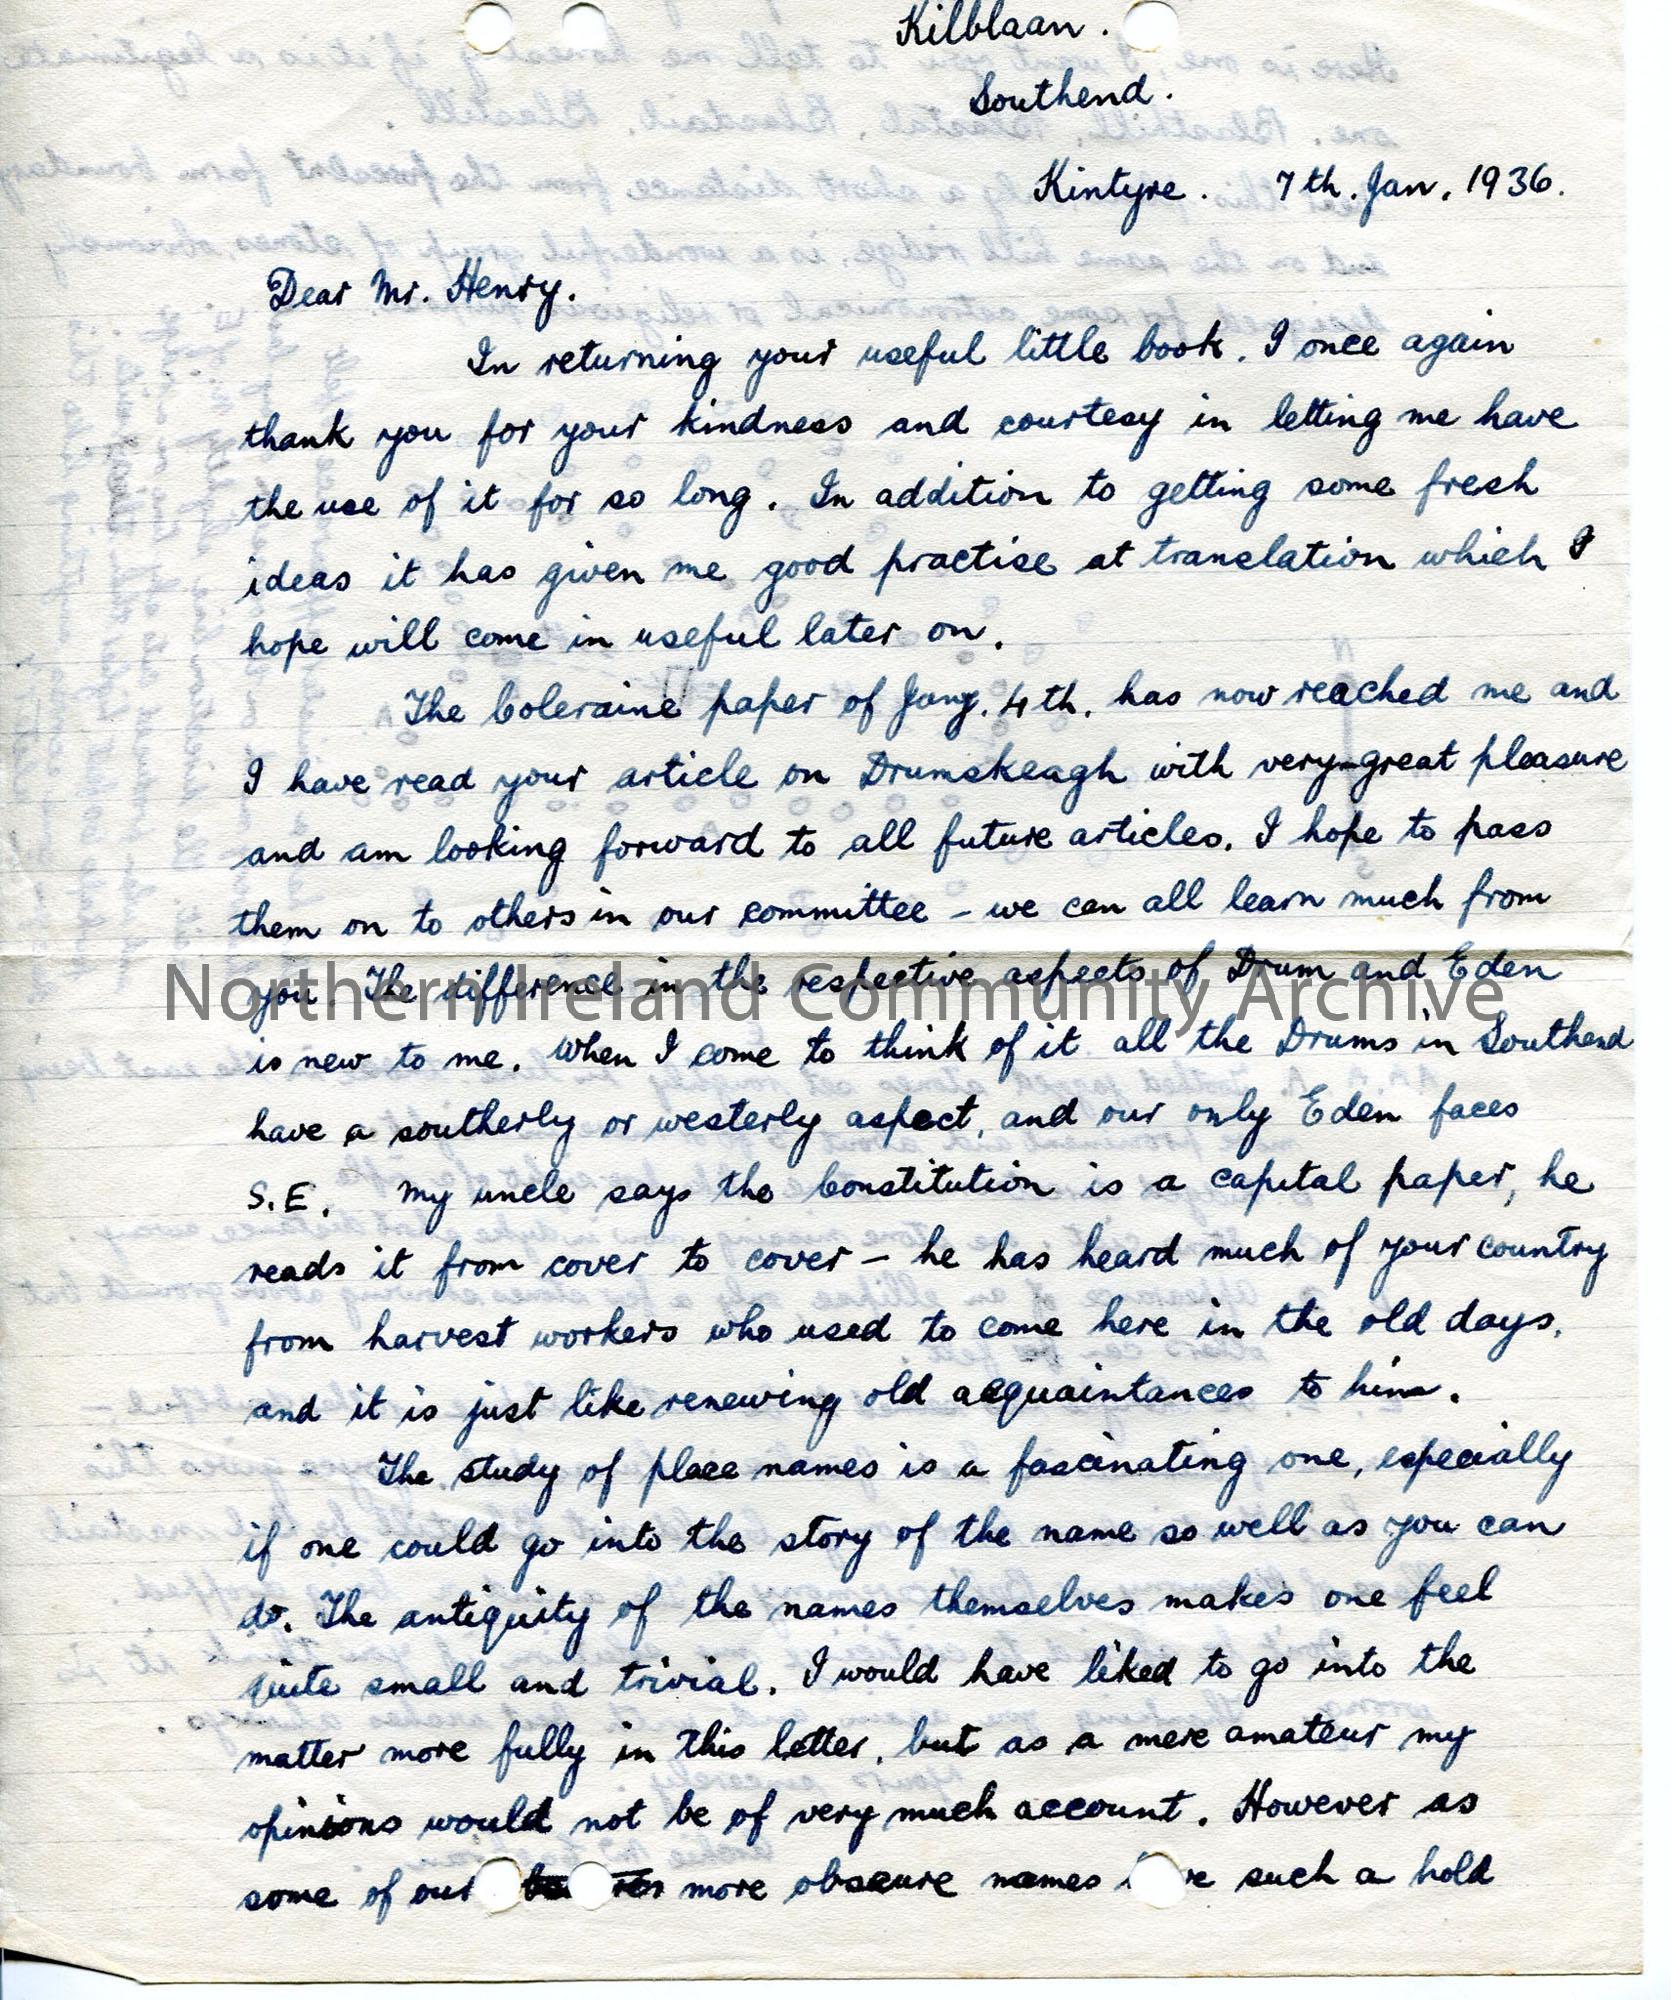 Kilblaan.
Southend.
Kintyre. 7th. Jan. 1936.
Dear Mr. Henry.
In returning your useful little book. I once again
thank you for your kindness and courtesy in letting me have
the use of it for so long. In addition to getting some fresh
ideas it has given me good practise at translation which I
hope will come in useful later on.
The Coleraine paper of Jany. 4th. has now reached me and
I have read your article on Drumskeagh with very great pleasure
and am looking forward to all future articles. I hope to pass
them on to others in our committee – we can all learn much from
you. The difference in the respective aspects of Drum and Eden
Northern Ireland Community Archive
is new to me. When I come to think of it all the Drums in Southend
have a southerly or westerly aspect, and our only Eden faces
S.E. My uncle says the Constitution is a capital paper, he
reads it from cover to cover – he has heard much of your country
from harvest workers who used to come here in the old days,
and it is just like renewing old acquaintances to him.
The study of place names is a fascinating one, especially
if one could go into the story of the name so well as you can
do. The antiquity of the names themselves makes one feel
quite small and trivial. I would have liked to go into the
matter more fully in this letter, but as a mere amateur my
opinions would not be of very much account. However as
some of our more obscure names such a hold